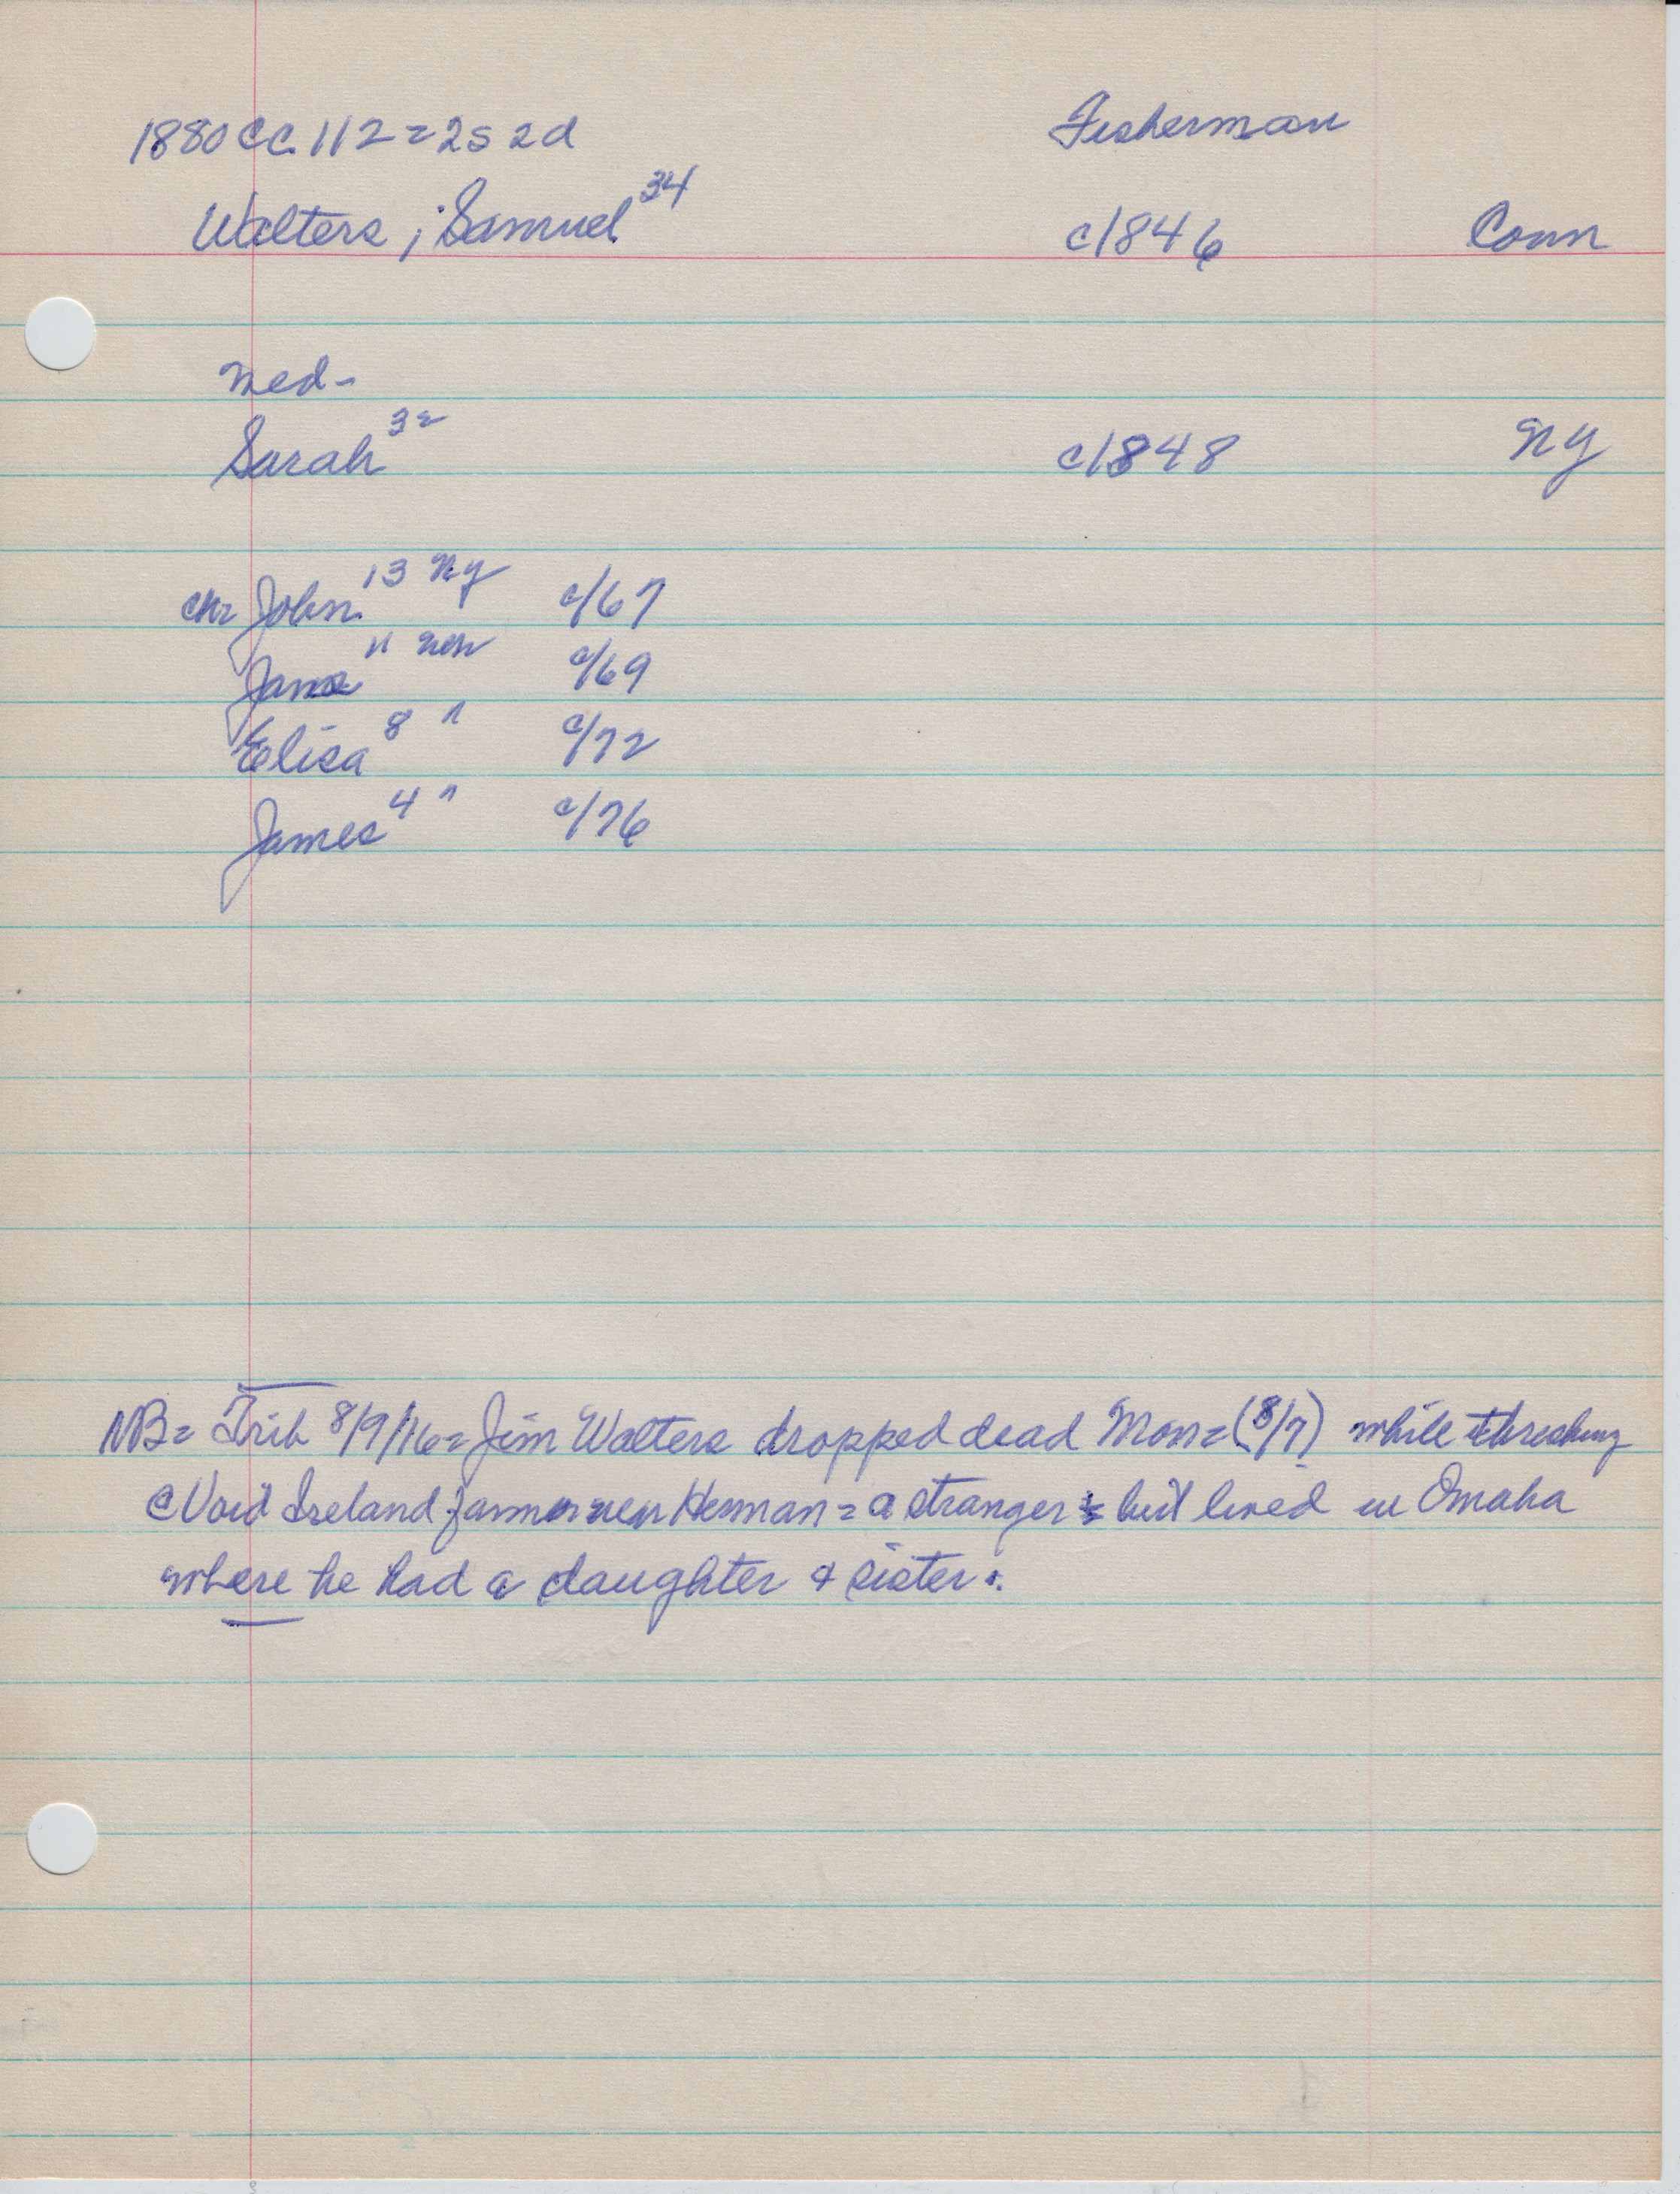 1880 CC 112 = 2s 2d Fisherman
Walters, Samuel 34 c/1846 Conn
med-
Sarah 32 c/1848 NY
chr John 13 NY c/67
Jane 11 Neb c/69
Elisa 8 " c/72
James 4 " c/76
NB = Trib 8/9/16 = Jim Walters dropped dead Mon = (8/7) while threshing
Ireland near Herman = a stranger but lived in Omaha
where he had a daughter & sister.